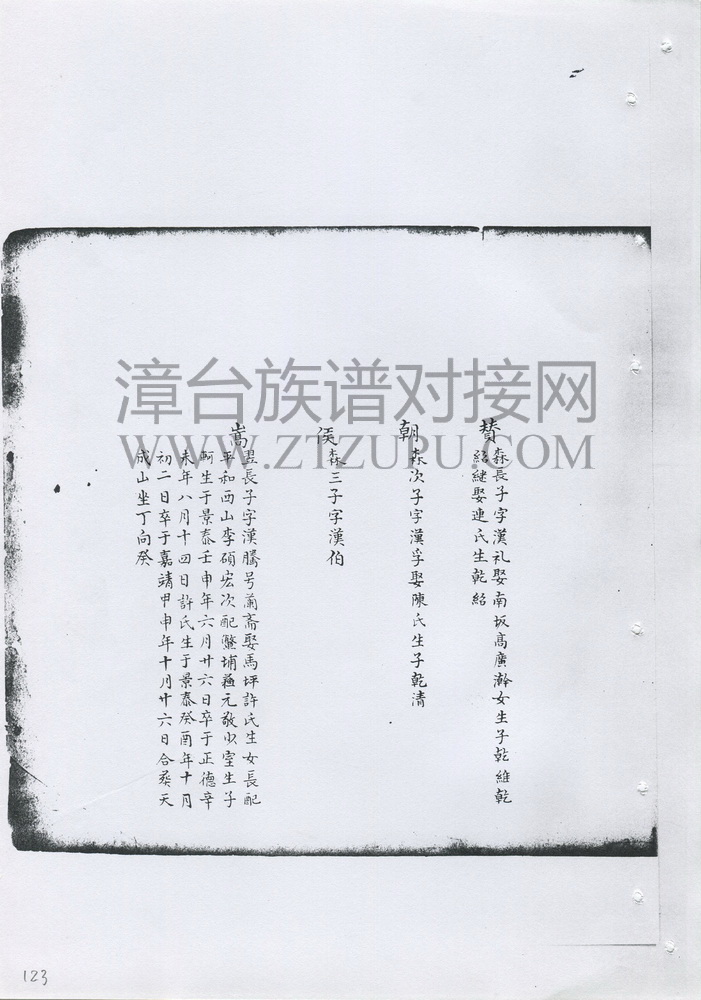 赞
森長子字漢礼娶南坂高廣瀚女生子乾維乾
紹継娶連氏生乾紹
朝
森次子字漢孚娶陳氏生子乾清
侯
森三子字漢伯
嵩
昱長子字漢騰号蘭斋娶馬坪許氏生女長配
平和西山李碩宏次配鰲埔蘓元敬少室生子
軻生于景泰壬申年六月廿六日卒于正德辛
未年八月十四日許氏生于景泰癸酉年十月
初二日卒于嘉靖甲申年十月廿六日合葵天
成山坐丁向癸
漳台族谱对接网
WWW.ZTZUPU.COM
123